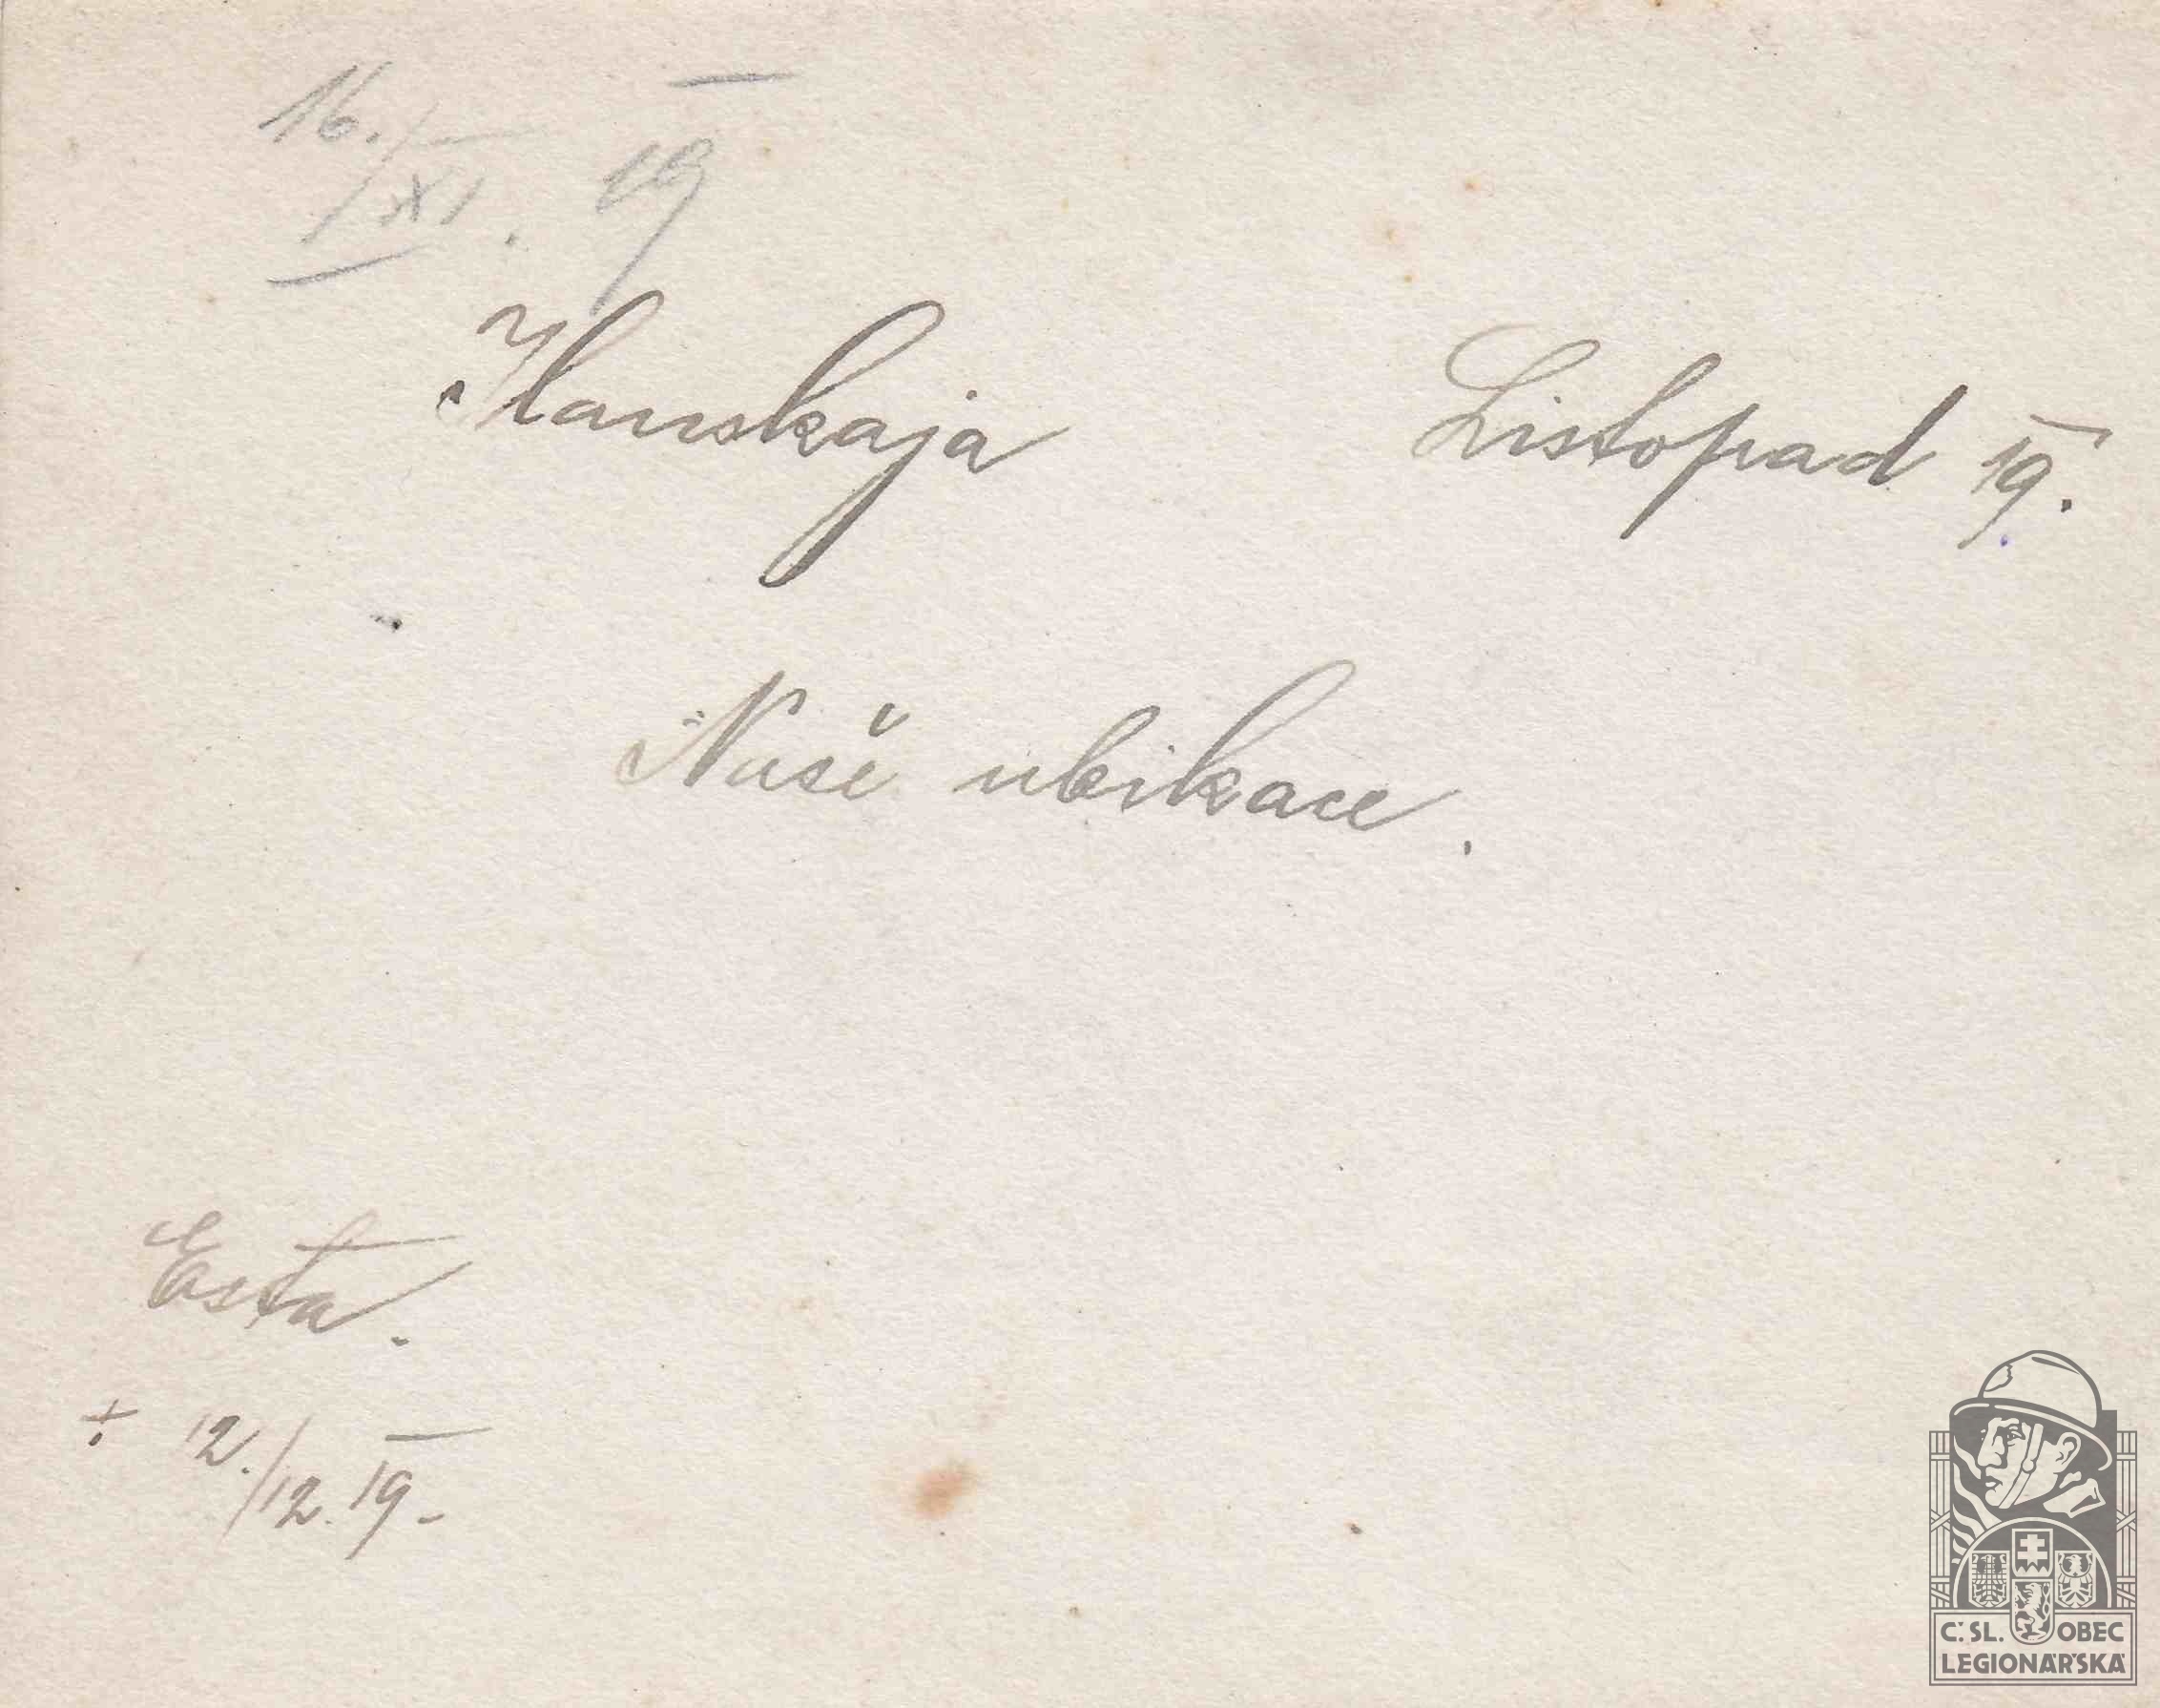 16./XI. 19
Ilanskaja Listopad 19.
Naše ubikace.
Esta.
+ 12./12. 19.-
Č. SL. OBEC
LEGIONÁŘSKÁ